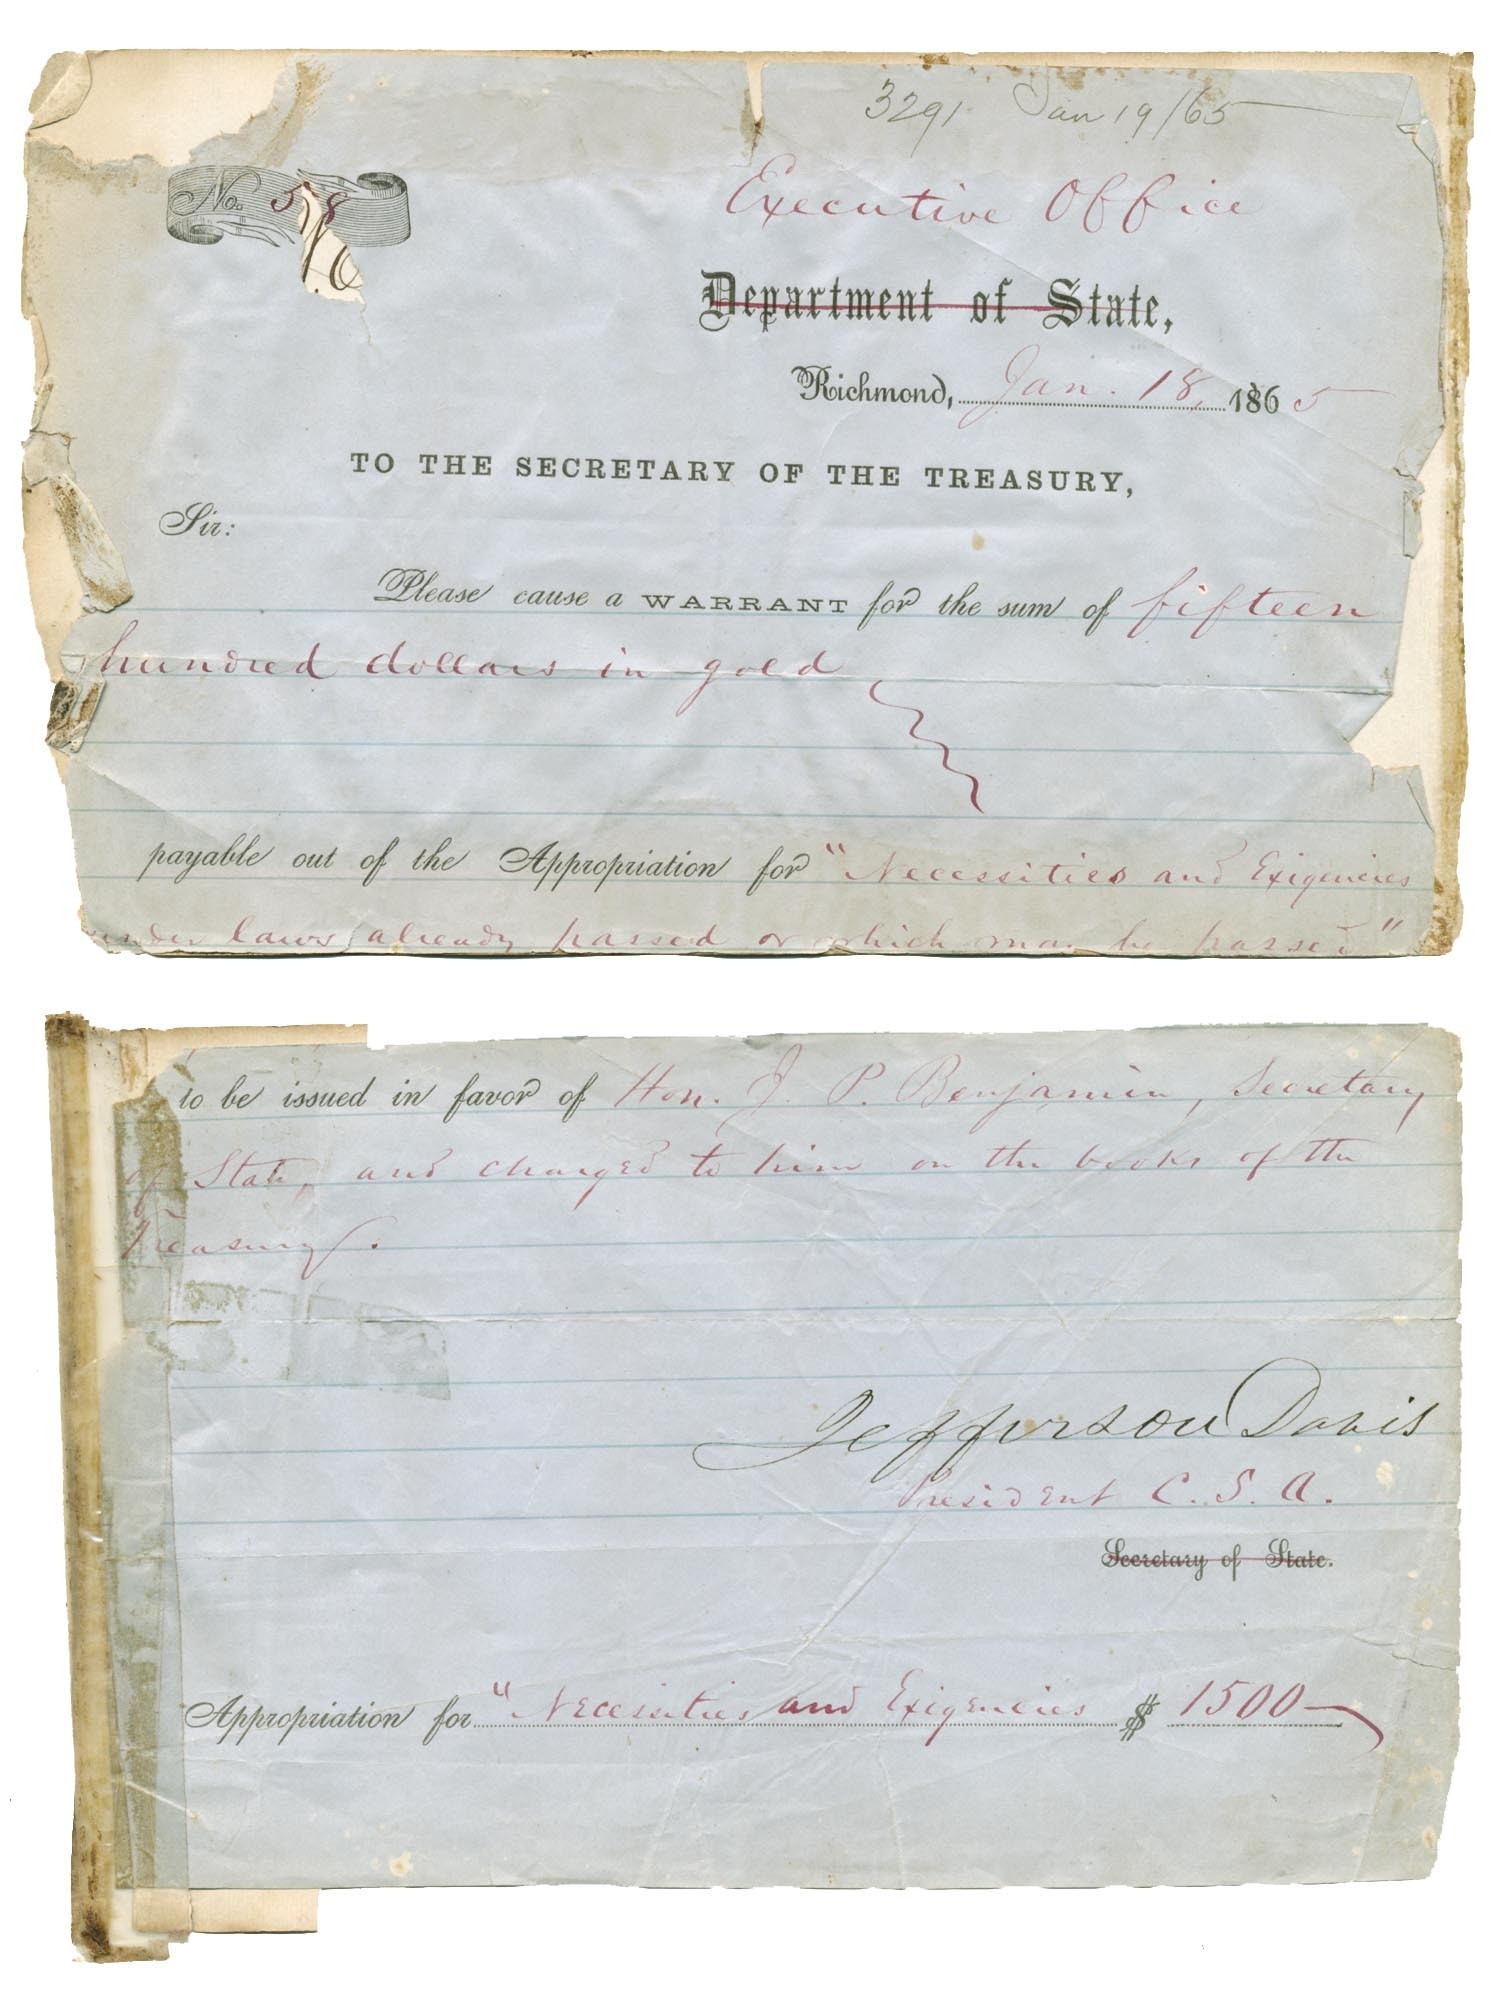 3291 Jan 19/65
No. 58
Executive Office
Department of State,
Richmond, Jan. 18, 1865
TO THE SECRETARY OF THE TREASURY,
Sir:
Please cause a WARRANT for the sum of fifteen
hundred dollars in gold
payable out of the Appropriation for "Necessities and Exigencies
under laws already passed or which may be passed"
to be issued in favor of Hon. J. P. Benjamin, Secretary
of State, and charged to him on the books of the
Treasury.
Jefferson Davis
President C. S. A.
Secretary of State.
Appropriation for "Necessities and Exigencies $ 1500